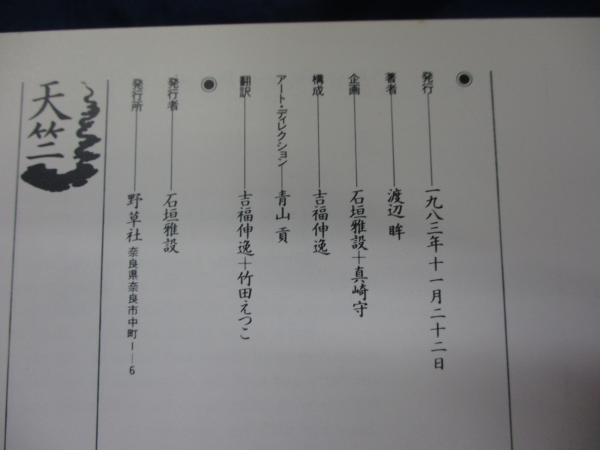 発行 一九八三年十一月二十二日
著者 渡辺 眸
企画 石垣雅設+真崎守
構成 吉福伸逸
アート・ディレクション 青山 貢
翻訳 吉福伸逸+竹田えつこ
発行者 石垣雅設
発行所 野草社 奈良県奈良市中町1—6
天竺